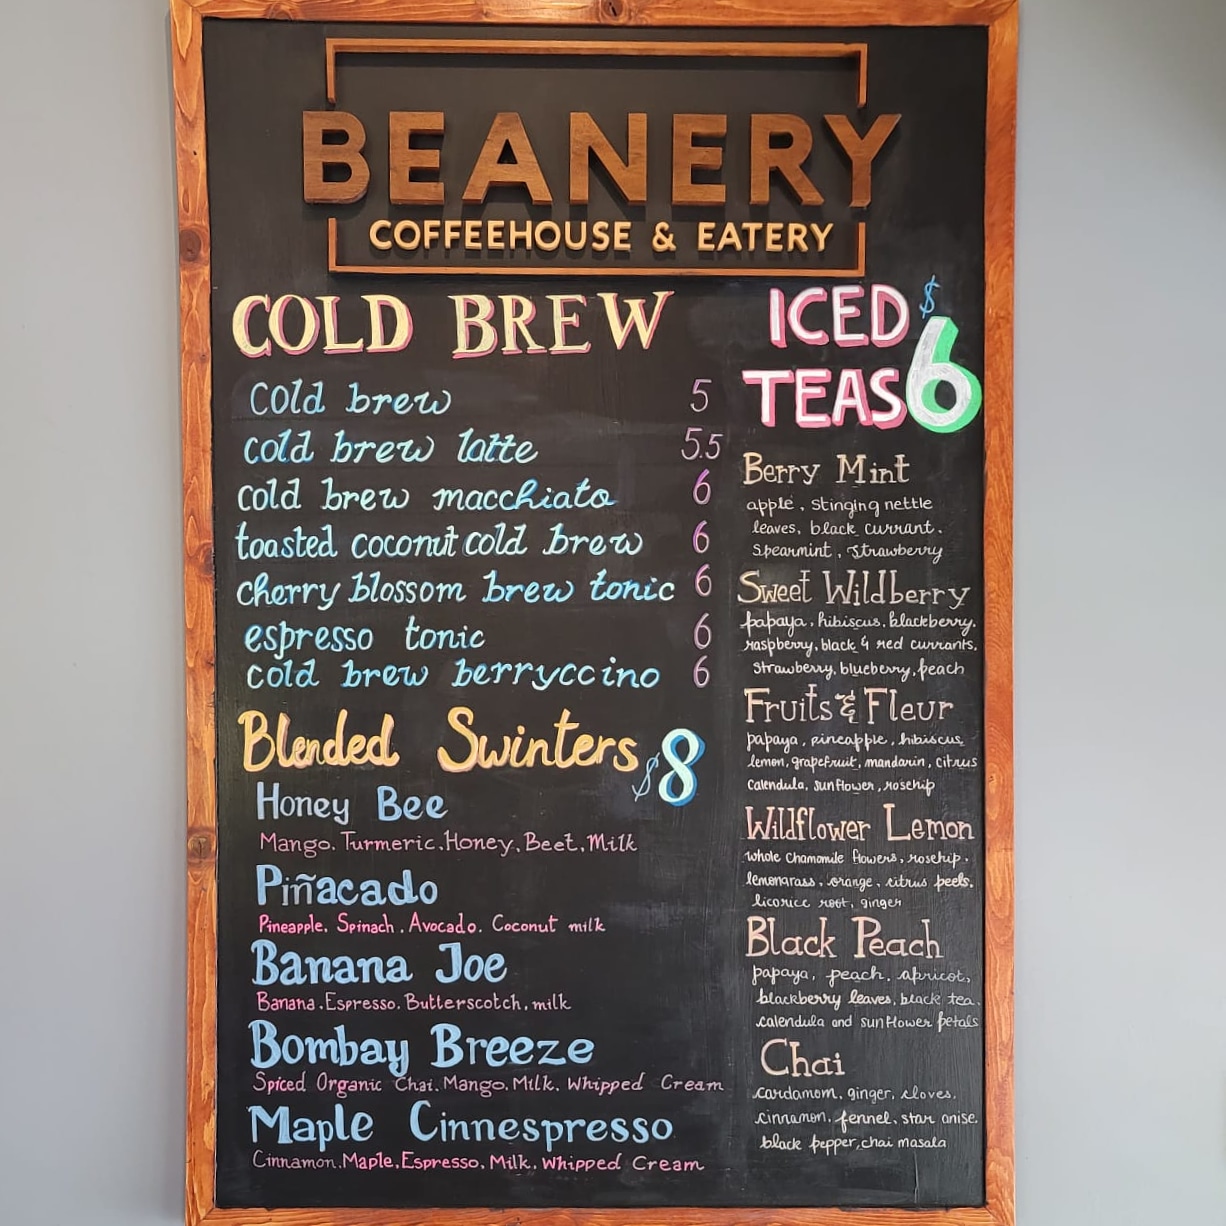 BEANERY
COFFEEHOUSE & EATERY
COLD BREW
Cold brew 5
cold brew latte 5.5
cold brew macchiato 6
toasted coconut cold brew 6
cherry blossom brew tonic 6
espresso tonic 6
cold brew berryccino 6
Blended Swinters $8
Honey Bee
Mango. Turmeric. Honey, Beet, Milk
Piñacado
Pineapple. Spinach. Avocado. Coconut milk
Banana Joe
Banana. Espresso. Butterscotch, milk
Bombay Breeze
Spiced Organic Chai. Mango. Milk. Whipped Cream
Maple Cinnespresso
Cinnamon. Maple. Espresso. Milk. Whipped Cream
ICED $
TEAS 6
Berry Mint
apple, stinging nettle
leaves, black currant.
Spearmint, strawberry
Sweet Wildberry
papaya, hibiscus, blackberry.
raspberry, black & red currants.
strawberry, blueberry, peach
Fruits & Fleur
papaya, pineapple, hibiscus,
lemon, grapefruit, mandarin, citrus
Calendula, sunflower, rosehip
Wildflower Lemon
whole Chamomile flowers, rosehip.
lemongrass, orange, citrus peels.
licorice root, ginger
Black Peach
papaya, peach, apricot,
blackberry leaves, black tea.
calendula and sunflower petals
Chai
cardamom, ginger, cloves.
cinnamon, fennel, star anise.
black pepper, chai masala